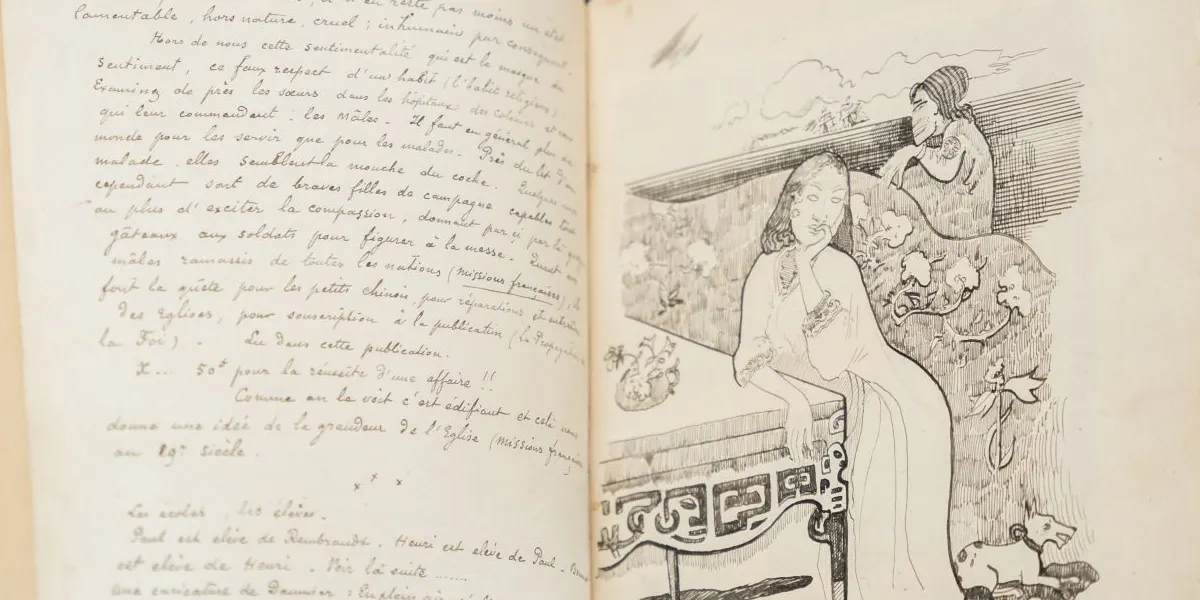 en reste pas moins un être
lamentable, hors nature, cruel; inhumain par conséquent.
Hors de nous cette sentimentalité qui est le masque du
sentiment, ce faux respect d'un habit (l'habit religieux).
Examinez de près les sœurs dans les hôpitaux des colonies et ceux
qui leur commandent: les Mâles. Il faut en général plus de
monde pour les servir que pour les malades. Près du lit d'un
malade elles semblent la mouche du coche. Quelques unes
cependant sont de braves filles de campagne capables tout
au plus d'exciter la compassion, donnant par ci par là quelques
gâteaux aux soldats pour figurer à la messe. Quant aux
mâles ramassis de toutes les nations (missions françaises), ils
font la quête pour les petits chinois, pour réparations et entretien
des Eglises, pour souscription à la publication (la Propagation de
la Foi). Lu dans cette publication.
X... 50f pour la réussite d'une affaire!!
Comme on le voit c'est édifiant et celà nous
donne une idée de la grandeur de l'Eglise (missions françaises
au 19e siècle.
x x x
Les écoles, les élèves.
Paul est élève de Rembrandt. Henri est élève de Paul.
est élève de Henri. Voir la suite ......
une caricature de Daumier: En plein air